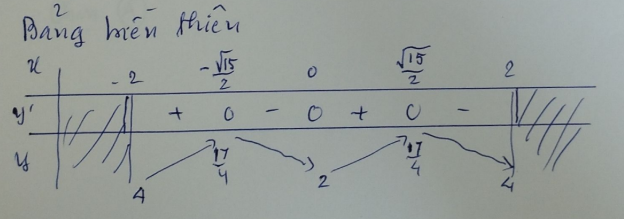 Bảng biến thiên
x -2 -√15/2 0 √15/2 2
y' + 0 - 0 + 0 -
17/4 17/4
y 4 2 4